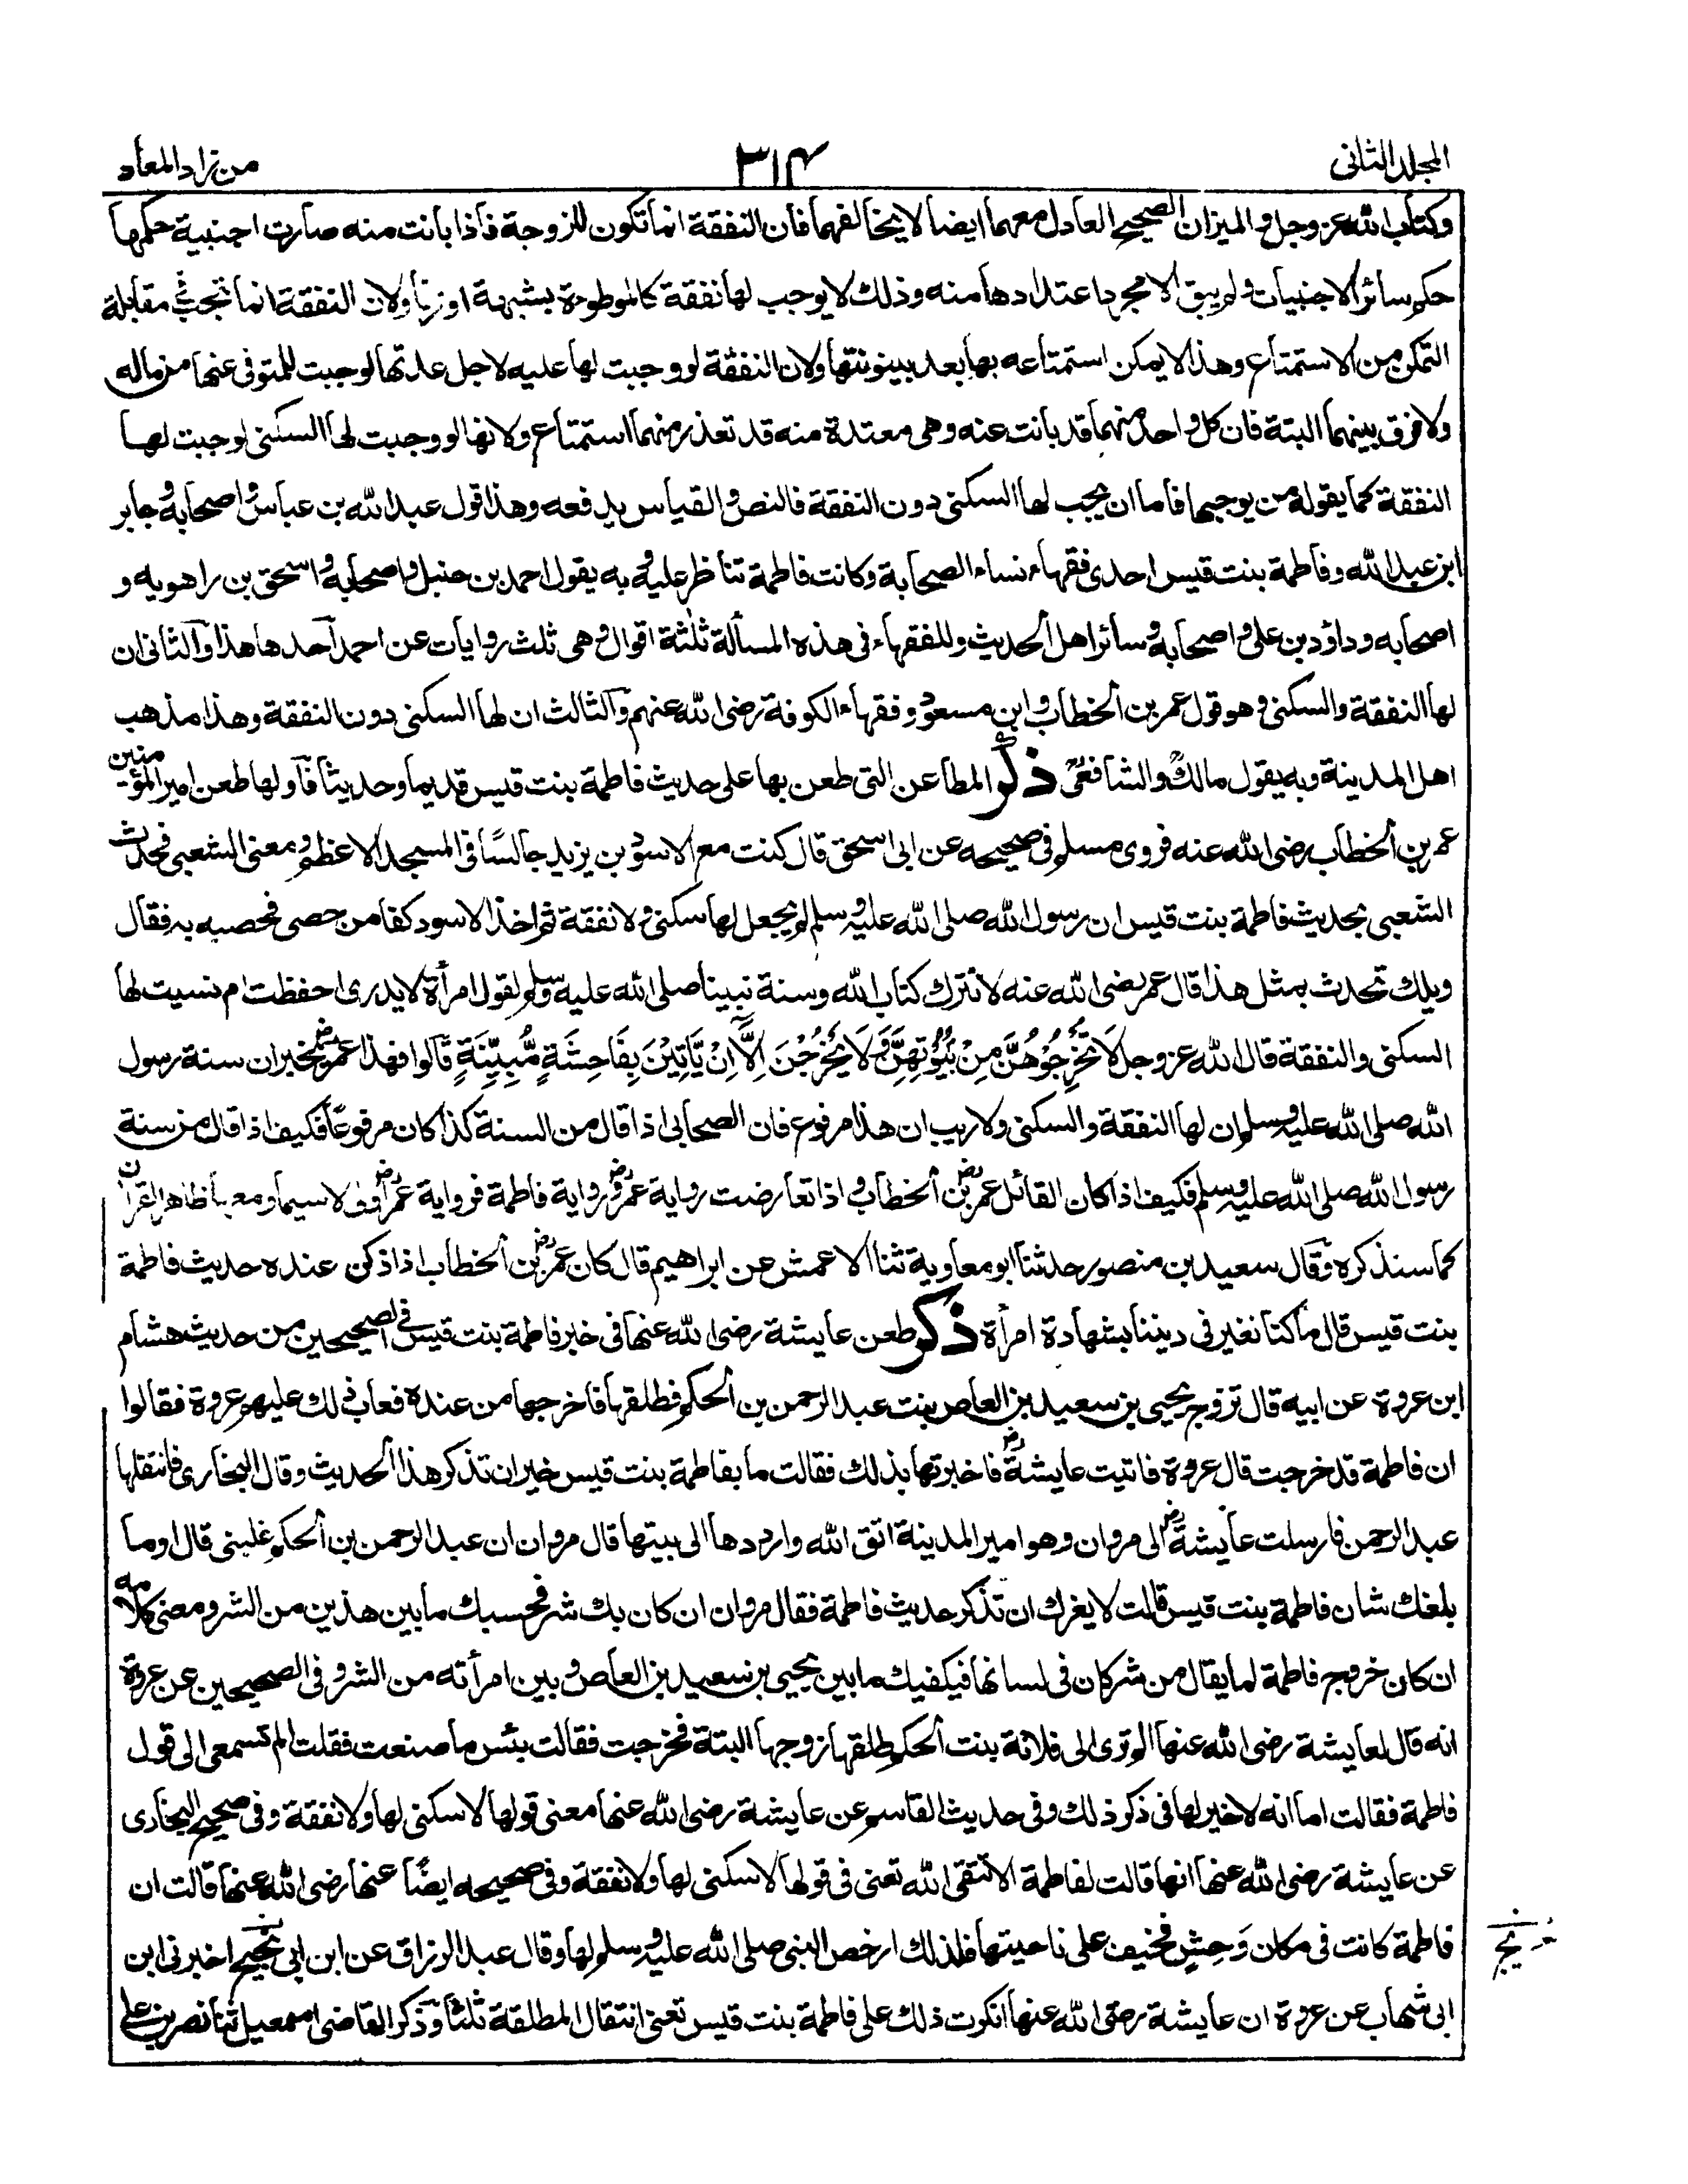 المجلد الثانى
٣١٤
من زاد المعاد
وكتاب الله عز وجل والميزان الصحيح العادل معهما ايضا لا يخالفهما فان النفقة انما تكون للزوجة فاذا بانت منه صارت اجنبية حكمها
حكم سائر الاجنبيات ولم يبق الا مجرد اعتدادها منه وذلك لا يوجب لها نفقة كالموطوءة بشبهة او زنا ولان النفقة انما تجب فى مقابلة
التمكن من الاستمتاع وهذا لا يمكن استمتاعه بها بعد بينونتها ولان النفقة لو وجبت لها عليه لاجل عدتها لوجبت للمتوفى عنها من ماله
ولا فرق بينهما البتة فان كل واحد منهما قد بانت عنه وهى معتدة منه قد تعذر منهما استمتاع ولانها لو وجبت لها السكنى لوجبت لها
النفقة كما يقوله من يوجبها فاما ان يجب لها السكنى دون النفقة فالنص والقياس يدفعه وهذا قول عبد الله بن عباس واصحابه وجابر
ابن عبد الله وفاطمة بنت قيس احدى فقهاء نساء الصحابة وكانت فاطمة تناظر عليه وبه يقول احمد بن حنبل واصحابه واسحق بن راهويه و
اصحابه وداؤد بن على واصحابه وسائر اهل الحديث وللفقهاء فى هذه المسألة ثلثة اقوال وهى ثلث روايات عن احمد احدها هذا والثانى ان
لها النفقة والسكنى وهو قول عمر بن الخطاب وابن مسعود وفقهاء الكوفة رضى الله عنهم والثالث ان لها السكنى دون النفقة وهذا مذهب
اهل المدينة وبه يقول مالك والشافعى ذكر المطاعن التى طعن بها على حديث فاطمة بنت قيس قديما وحديثا فاولها طعن امير المؤمنين
عمر بن الخطاب رضى الله عنه فروى مسلم فى صحيحه عن ابى اسحق قال كنت مع الاسود بن يزيد جالسًا فى المسجد الاعظم ومعنى الشعبى فحدث
الشعبى بحديث فاطمة بنت قيس ان رسول الله صلى الله عليه وسلم لم يجعل لها سكنى ولا نفقة ثم اخذ الاسود كفا من حصى فحصبه به فقال
ويلك تحدث بمثل هذا قال عمر رضى الله عنه لا نترك كتاب الله وسنة نبينا صلى الله عليه وسلم لقول امرأة لا يدرى احفظت ام نسيت لها
السكنى والنفقة قال الله عز وجل لَا تُخْرِجُوْهُنَّ مِنْ بُيُوْتِهِنَّ وَلَا يَخْرُجْنَ اِلَّا اِنْ يَّاْتِيْنَ بِفَاحِشَةٍ مُّبِيِّنَةٍ قالوا فهذا عمر يخبر ان سنة رسول
الله صلى الله عليه وسلم ان لها النفقة والسكنى ولا ريب ان هذا مرفوع فان الصحابى اذا قال من السنة كذا كان مرفوعًا فكيف اذا قال من سنة
رسول الله صلى الله عليه وسلم فكيف اذا كان القائل عمر بن الخطاب واذا تعارضت رواية عمر ورواية فاطمة فرواية عمر اولى لا سيما ومعها ظاهر القران
كما سنذكره وقال سعيد بن منصور حدثنا ابو معاوية ثنا الاعمش عن ابراهيم قال كان عمر بن الخطاب اذا ذكر عنده حديث فاطمة
بنت قيس قال ما كنا نغير فى ديننا بشهادة امرأة ذكر طعن عايشة رضى الله عنها فى خبر فاطمة بنت قيس فى الصحيحين من حديث هشام
ابن عروة عن ابيه قال تزوج يحيى بن سعيد بن العاص بنت عبد الرحمن بن الحكم فطلقها فاخرجها من عنده فعاب ذلك عليهم عروة فقالوا
ان فاطمة قد خرجت قال عروة فاتيت عايشة فاخبرتها بذلك فقالت ما بفاطمة بنت قيس خير ان تذكر هذا الحديث وقال البخارى فانتقلها
عبد الرحمن فارسلت عايشة الى مروان وهو امير المدينة اتق الله وارددها الى بيتها قال مروان ان عبد الرحمن بن الحكم غلبنى قال او ما
بلغك شان فاطمة بنت قيس قالت لا يغرك ان تذكر حديث فاطمة فقال مروان ان كان بك شر فحسبك ما بين هذين من الشر ومعنى كلامه
ان كان خروج فاطمة لما يقال من شر كان فى لسانها فيكفيك ما بين يحيى بن سعيد بن العاص وبين امرأته من الشر وفى الصحيحين عن عروة
انه قال لعايشة رضى الله عنها الم ترى الى فلانة بنت الحكم طلقها زوجها البتة فخرجت فقالت بئس ما صنعت فقلت الم تسمعى الى قول
فاطمة فقالت اما انه لا خير لها فى ذكر ذلك وفى حديث القاسم عن عايشة رضى الله عنها معنى قولها لا سكنى لها ولا نفقة وفى صحيح البخارى
عن عايشة رضى الله عنها انها قالت لفاطمة الا تتقى الله تعنى فى قولها لا سكنى لها ولا نفقة وفى صحيحه ايضًا عنها رضى الله عنها قالت ان
فاطمة كانت فى مكان وَحِشٍ فخيف على ناحيتها فلذلك ارخص النبى صلى الله عليه وسلم لها وقال عبد الرزاق عن ابن ابى نجيح اخبرنى ابن
ابى شهاب عن عروة ان عايشة رضى الله عنها انكرت ذلك على فاطمة بنت قيس تعنى انتقال المطلقة ثلثا وذكر القاضى اسمعيل ثنا نصر بن على